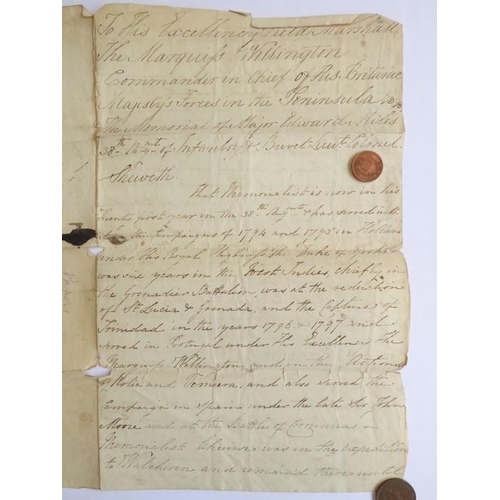 To His Excellency Field Marshall
The Marquiss Wellington
Commander in Chief of His Britanic
Majesty's Forces in the Peninsula &c
The Memorial of Major Edward Miles
38th Regmt of Infantry & Brevet Lieut Colonel
Sheweth
That Memorialist is now in his
Twenty first year in the 38th Regmt & has served with
it the Campaigns of 1794 and 1795 in Holland
under His Royal Highness the Duke of York
was six years in the West Indies, chiefly in
the Grenadier Battalion, was at the reduction
of St Lucia & Grenada, and the Capture of
Trinidad in the years 1796 & 1797 and
served in Portugal under His Excellency the
Marquiss Wellington, and in the Actions
Rolie and Vemiera, and also served the
Campaign in Spain under the late Sir John
Moore and at the Battle of Corunna
Memorialist likewise was in the expedition
to Walcheren and remained there until